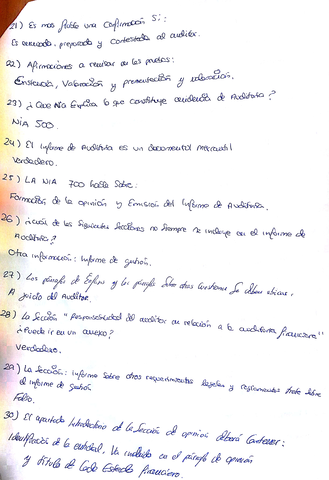 21) Es mas fiable una Confirmación si:
Es enviada, preparada y contestada al auditor.
22) Afirmaciones a revisar en las pruebas:
Existencia, Valoración y presentación y valoración.
23) ¿Que NIA Explica lo que constituye evidencia de Auditoria?
NIA 500.
24) El informe de Auditoria es un documental mercantil
Verdadero.
25) LA NIA 700 habla Sobre:
Formación de la opinión y Emisión del Informe de Auditoria.
26) ¿cuál de las siguientes Secciones no siempre se incluye en el informe de
Auditoria?
Otra información: Informe de gestión.
27) Los párrafos de Énfasis y los párrafos Sobre otras Cuestiones Se deben ubicar.
A juicio del Auditor.
28) La Sección "Responsabilidad del auditor en relación a la auditoria financiera"
¿Puede ir en un anexo?
Verdadero.
29) La Sección: informe Sobre otros requerimientos legales y reglamentarios trata Sobre
el informe de gestión
Falso.
30) El apartado Introductorio de la Sección de opinión deberá Contener:
Identificación de la entidad, incluido en el párrafo de opinión
y título de Cada Estado financiero.